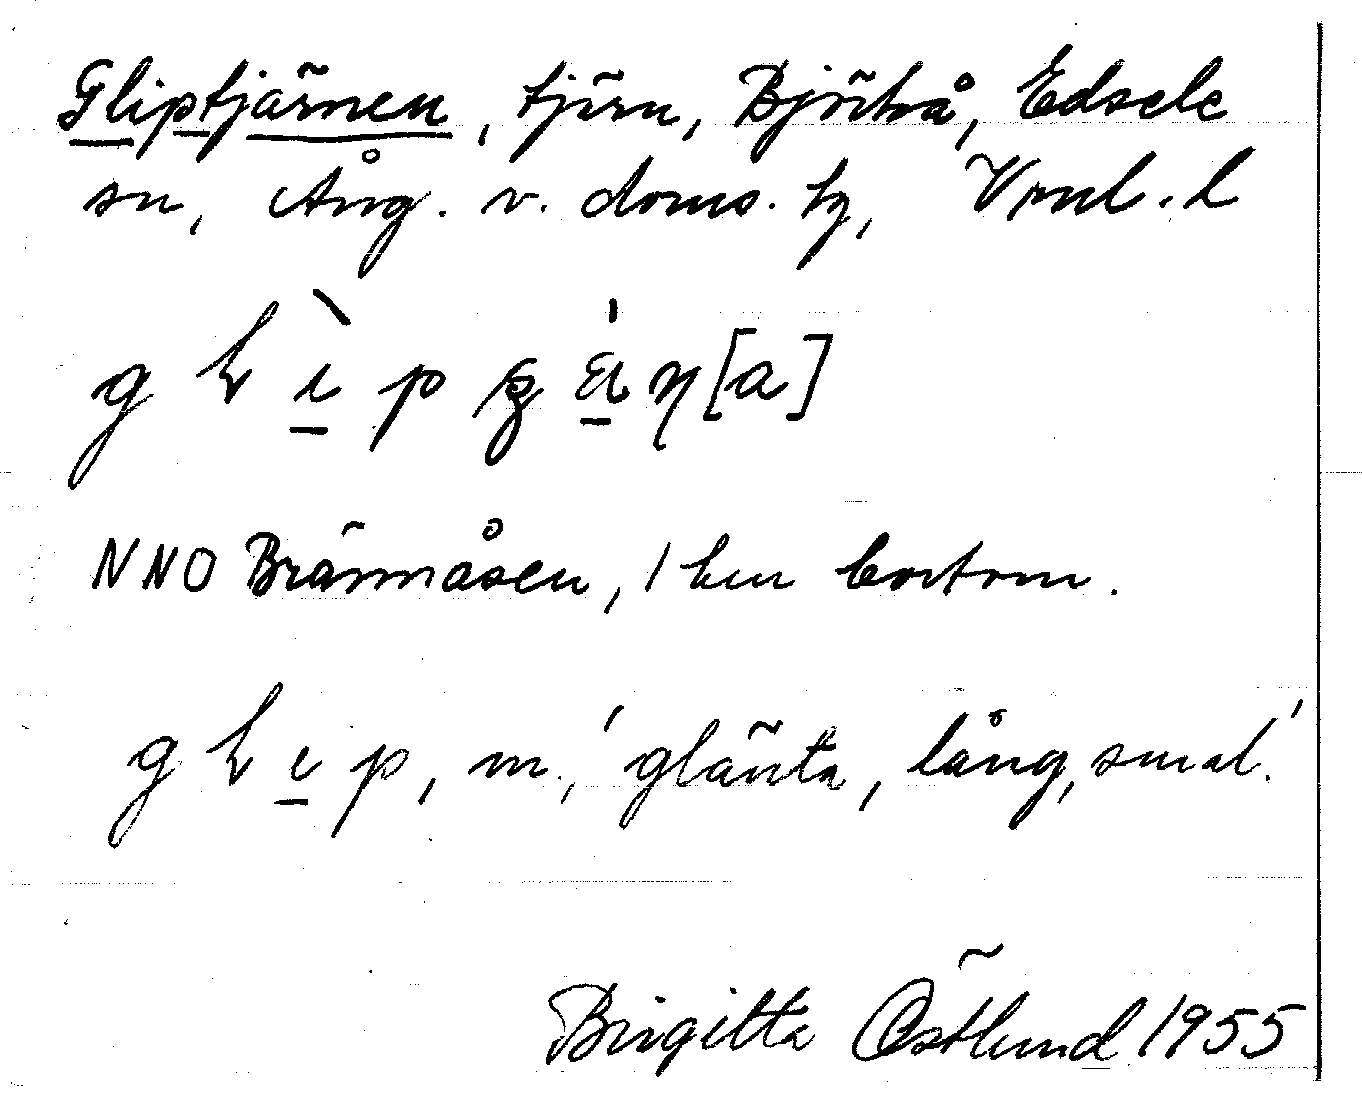 Gliptjärnen, tjärn, Björkå, Edsele
sn, Ång. v. doms. hg, Vnl. l
NNO Brännåsen, 1 km bortom.
m., 'glänta, lång, smal.'
Birgitta Östlund 1955